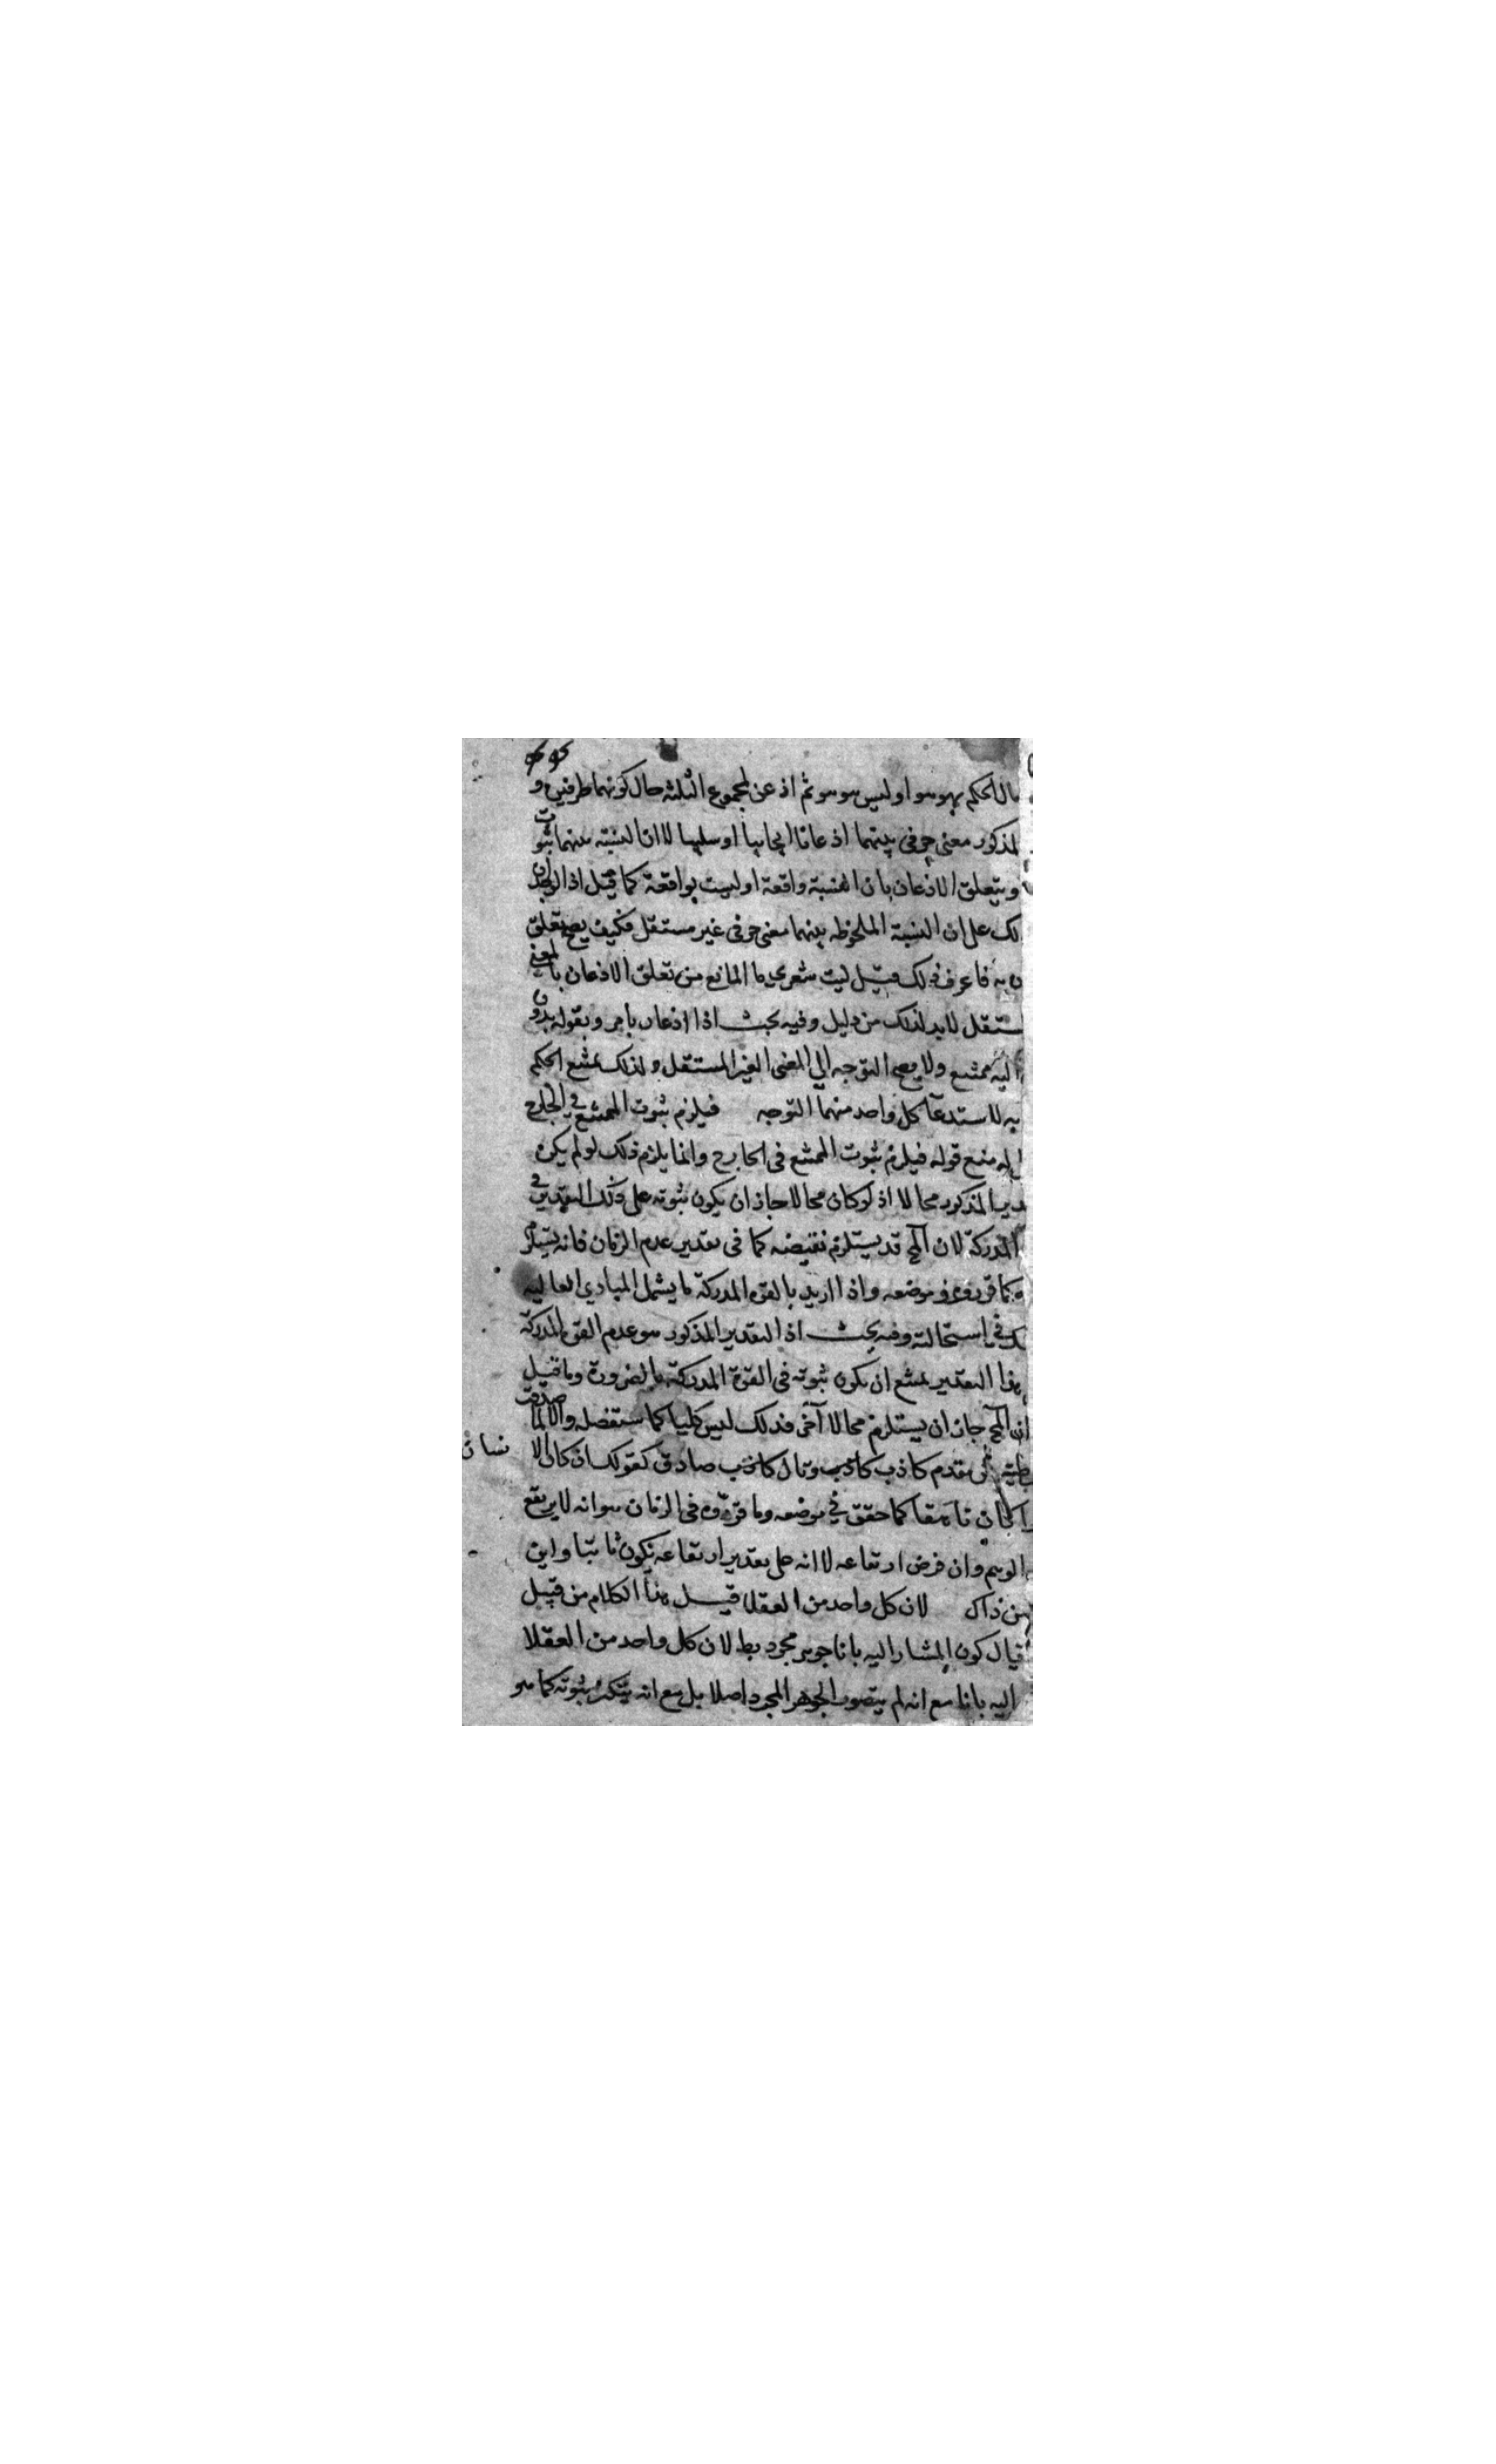 حال الحكم بهو هو او ليس هو هو ثم اذعن لمجموع الثلثة حال كونهما طرفين و
المذكور معنى حرفي بينهما اذعانا ايجابيا او سلبيا لا ان النسبة بينهما ثبوت
ويتعلق الاذعان بان النسبة واقعة او ليست بواقعة كما قيل اذ الوجدان
لك على ان النسبة الملحوظه بينهما معنى حرفي غير مستقل فكيف يصح تعلق
ن به فاعرف ذلك قيل ليت شعري ما المانع من تعلق الاذعان بالمعنى
مستقل لابد لذلك من دليل وفيه بحث اذ الاذعان بامر وبقوله بدون
اليه ممتنع ولا يصح التوجه الى المعنى الغير المستقل ولذلك يمتنع الحكم
به لاستدعآ كل واحد منهما التوجه فيلزم ثبوت الممتنع في الخارج
له منع قوله فيلزم ثبوت الممتنع في الخارج وانما يلزم ذلك لو لم يكن
دير المذكور محالا اذ لو كان محالا جاز ان يكون ثبوته على ذلك التقدير في
المدركة لان المح قد يستلزم نقيضه كما في تقدير عدم الزمان فانه يستلزم
ه كما قرروه في موضعه واذا اريد بالقوه المدركة ما يشمل المبادي العاليه
لك في استحالته وفيه بحث اذ التقدير المذكور هو عدم القوى المدركة
هذا التقدير يمتنع ان يكون ثبوته في القوة المدركة بالضرورة وما قيل
ان المح جاز ان يستلزم محالا آخر فذلك ليس كليا كما ستفصله والا لما صدقت
طية في مقدم كاذب كاذب وتال كاذب صادق كقولك ان كان الا نسان
را كان ناهقا كما حقق في موضعه وما قرروه في الزمان هو انه لا يرتفع
الوهم وان فرض ارتفاعه لا انه على تقدير ارتفاعه يكون ثابتا واين
من ذاك لان كل واحد من العقلا قيل هذا الكلام من قبيل
قيال كون المشار اليه بانا جوهر مجرد بط لان كل واحد من العقلا
اليه بانا مع انه لم يتصور الجوهر المجرد اصلا بل مع انه ينكر ثبوته كما هو